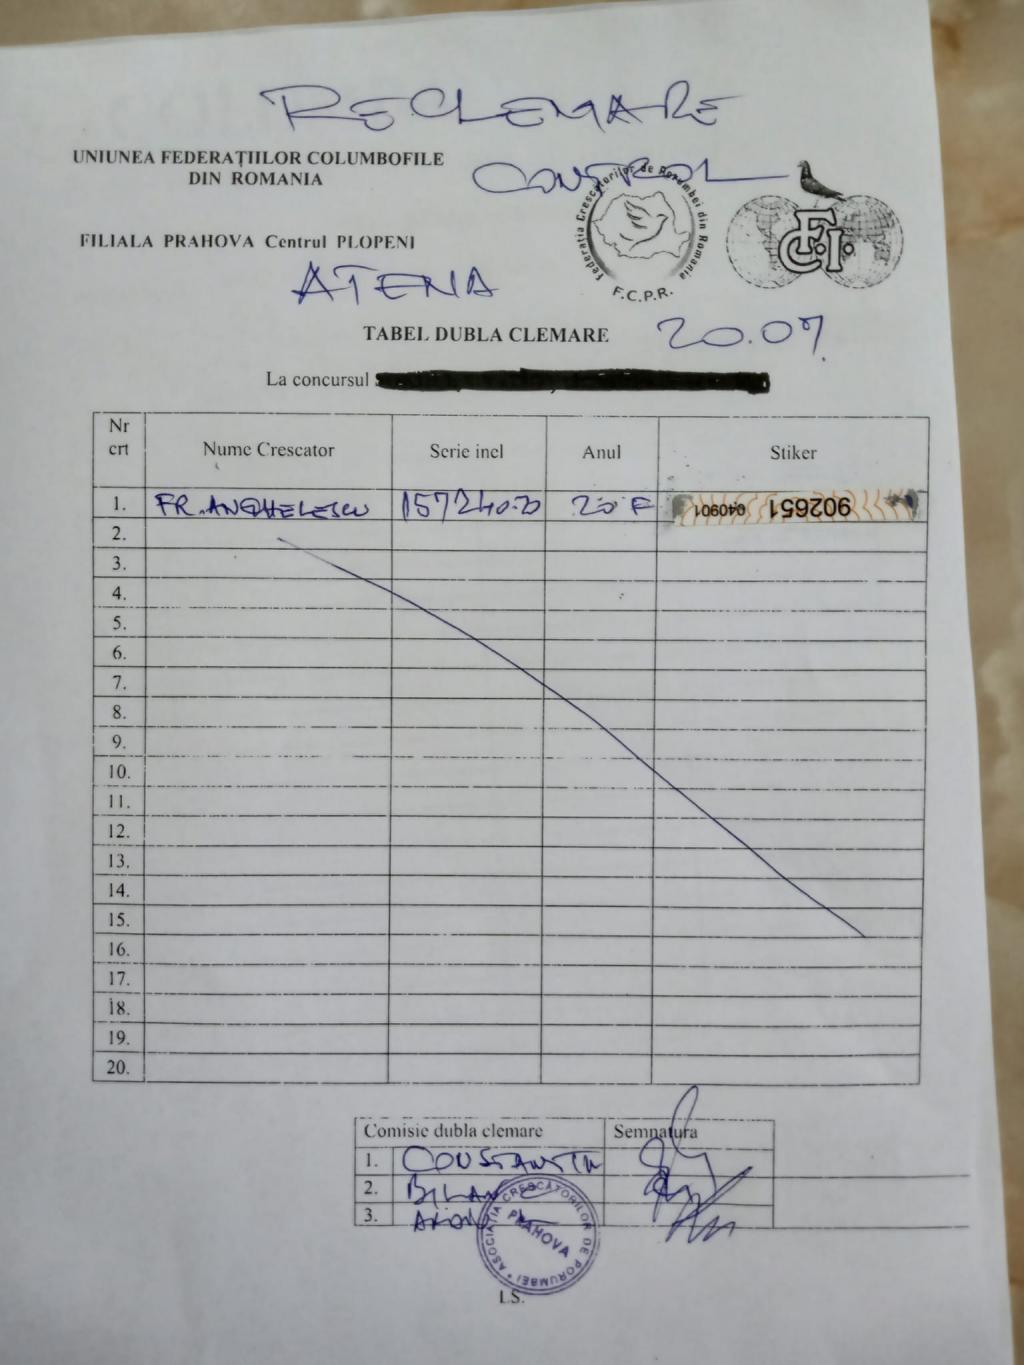 RECLEMARE
CONTROL
UNIUNEA FEDERAȚIILOR COLUMBOFILE
DIN ROMANIA
Federatia Crescatorilor de Porumbei din Romania
F.C.P.R.
F.C.I.
FILIALA PRAHOVA Centrul PLOPENI
ATENA
TABEL DUBLA CLEMARE 20.07.
La concursul
Nr crt Nume Crescator Serie inel Anul Stiker
1. FR. ANGHELESCU 157240.20 20 F 902651 040901
2.
3.
4.
5.
6.
7.
8.
9.
10.
11.
12.
13.
14.
15.
16.
17.
18.
19.
20.
Comisie dubla clemare Semnatura
1. CONSTANTIN
2.
3.
ASOCIAȚIA CRESCĂTORILOR DE PORUMBEI
PRAHOVA
L.S.